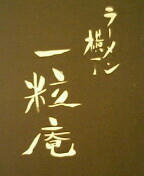 ラーメン
横丁
一粒庵